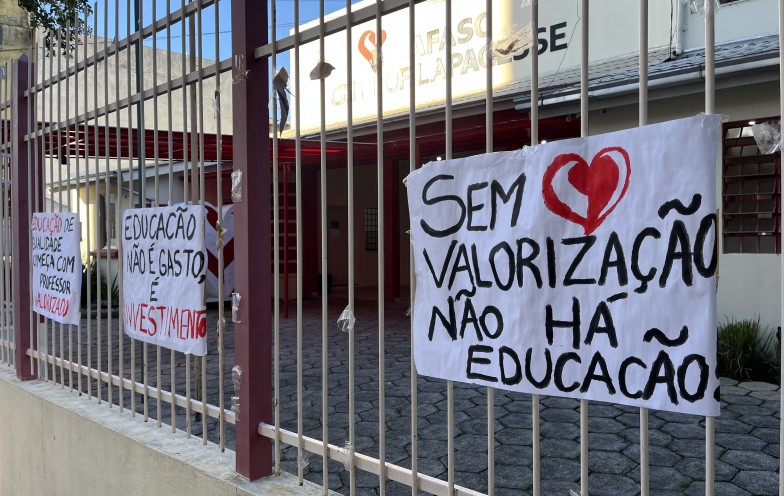 EDUCAÇÃO DE
QUALIDADE
COMEÇA COM
PROFESSOR
VALORIZADO
EDUCAÇÃO
NÃO É GASTO,
É
INVESTIMENTO
SEM
VALORIZAÇÃO
NÃO HÁ
EDUCAÇÃO.